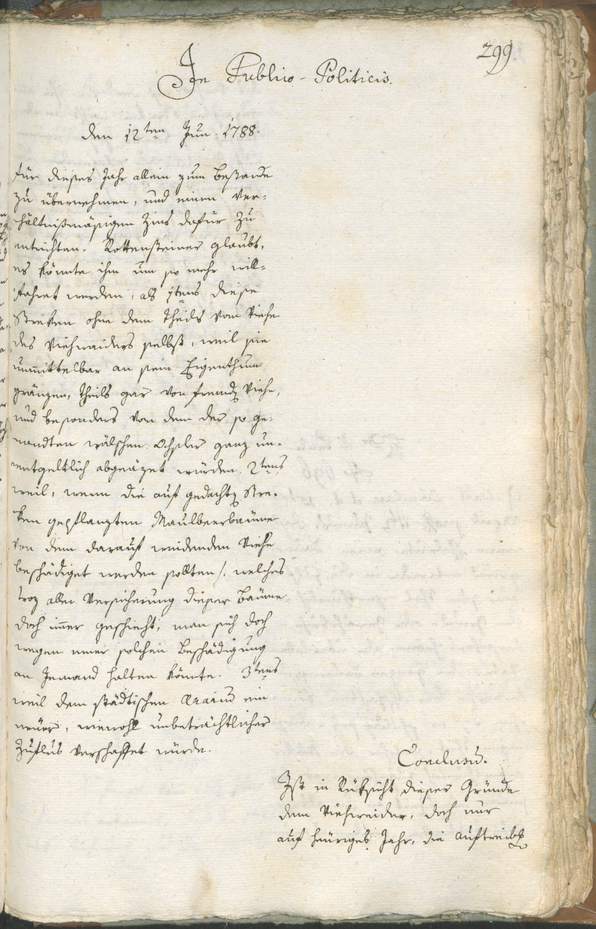 299
In Publico-Politicis.
den 12ten Jun. 1788.
für dieses Jahr allein zum Bestande
zu übernehmen, und einen ver-
hältnißmäßigen Zins dafür zu
entrichten. Rottensteiner glaubt,
es könnte ihm um so mehr will-
fahret werden, als 1tens diese
Streken ohne dem theils vom Viehe
des Viehwaiders selbst, weil sie
unmittelbar an sein Eigenthum
gränzen, theils gar von fremdz Viehe,
und besonders von dem der so ge-
nandten wälschen Ochsler ganz un-
entgeltlich abgeäzet würden. 2tens
weil, wenn die auf gedachtz Stre-
ken gepflanzten Maulbeerbäume
von dem darauf weidenden Viehe
beschädiget werden sollten /: welches
troz aller Versicherung dieser Bäume
doch immer geschieht: man sich doch
wegen einer solchen Beschädigung
an Jemand halten könnte. 3tens
weil dem städtischen Erario ein
neuer, wiewohl unbeträchtlicher
Zuflus verschaffet würde.
Conclusum.
Ist in Rüksicht dieser Gründe
dem Viehweider, doch nur
auf heuriges Jahr, die Auftreibg